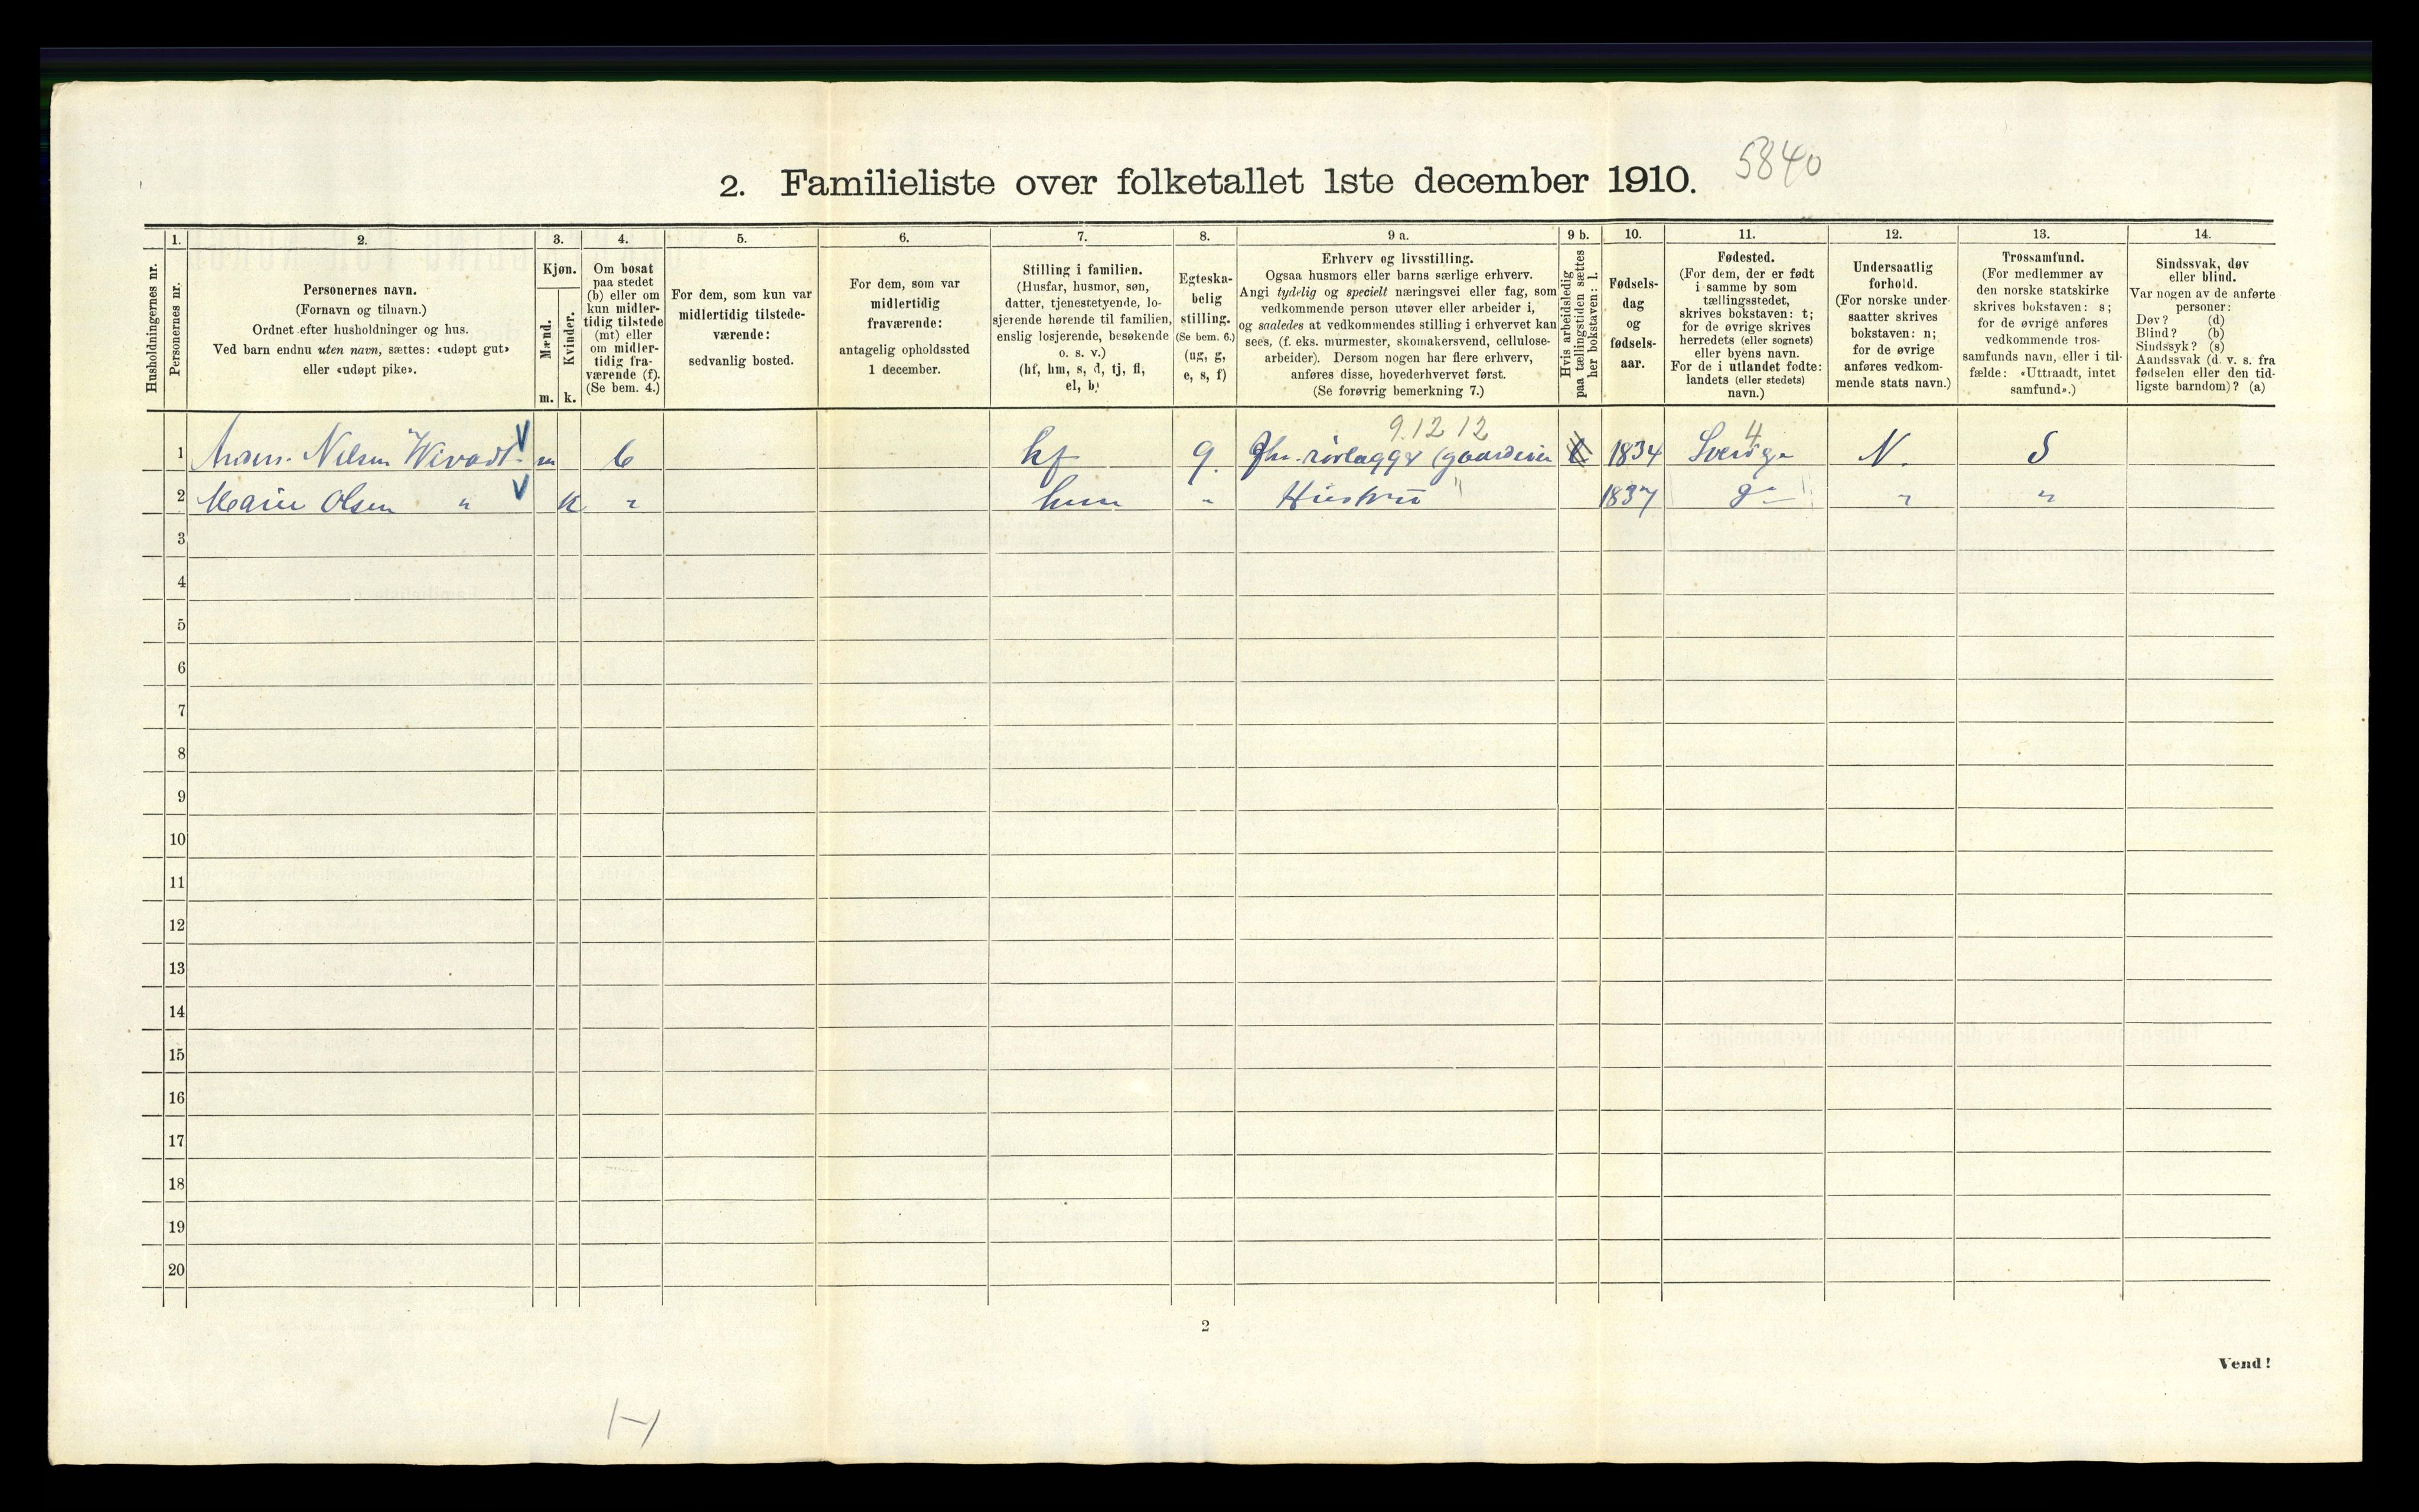 5840
2. Familieliste over folketallet 1ste december 1910.
Husholdningernes nr.
1.
Personernes nr.
2.
Personernes navn.
(Fornavn og tilnavn.)
Ordnet efter husholdninger og hus.
Ved barn endnu uten navn, sættes: «udøpt gut»
eller «udøpt pike».
3.
Kjøn.
Mænd.
Kvinder.
m. k.
4.
Om bosat
paa stedet
(b) eller om
kun midler-
tidig tilstede
(mt) eller
om midler-
tidig fra-
værende (f).
(Se bem. 4.)
5.
For dem, som kun var
midlertidig tilstede-
værende:
sedvanlig bosted.
6.
For dem, som var
midlertidig
fraværende:
antagelig opholdssted
1 december.
7.
Stilling i familien.
(Husfar, husmor, søn,
datter, tjenestetyende, lo-
sjerende hørende til familien,
enslig losjerende, besøkende
o. s. v.)
(hf, hm, s, d, tj, fl,
el, b)
8.
Egteska-
belig
stilling.
(Se bem. 6.)
(ug, g,
e, s, f)
9 a.
Erhverv og livsstilling.
Ogsaa husmors eller barns særlige erhverv.
Angi tydelig og specielt næringsvei eller fag, som
vedkommende person utøver eller arbeider i,
og saaledes at vedkommendes stilling i erhvervet kan
sees, (f. eks. murmester, skomakersvend, cellulose-
arbeider). Dersom nogen har flere erhverv,
anføres disse, hovederhvervet først.
(Se forøvrig bemerkning 7.)
9 b.
Hvis arbeidsledig
paa tællingstiden sættes
her bokstaven: l.
10.
Fødsels-
dag
og
fødsels-
aar.
11.
Fødested.
(For dem, der er født
i samme by som
tællingsstedet,
skrives bokstaven: t;
for de øvrige skrives
herredets (eller sognets)
eller byens navn.
For de i utlandet fødte:
landets (eller stedets)
navn.)
12.
Undersaatlig
forhold.
(For norske under-
saatter skrives
bokstaven: n;
for de øvrige
anføres vedkom-
mende stats navn.)
13.
Trossamfund.
(For medlemmer av
den norske statskirke
skrives bokstaven: s;
for de øvrige anføres
vedkommende tros-
samfunds navn, eller i til-
fælde: «Uttraadt, intet
samfund».)
14.
Sindssvak, døv
eller blind.
Var nogen av de anførte
personer:
Døv? (d)
Blind? (b)
Sindssyk? (s)
Aandssvak (d. v. s. fra
fødselen eller den tid-
ligste barndom)? (a)
9.12 12 4
1 Nilsen m b hf g. rørlægger (gaardeier 1834 Sverige N. S
2 Marie Olsen " k " hm " Hustru 1837 do " "
3
4
5
6
7
8
9
10
11
12
13
14
15
16
17
18
19
20
2
Vend!